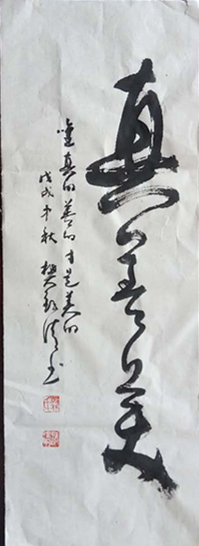 真善美
唯真的善的才是美的
戊戌中秋 樊